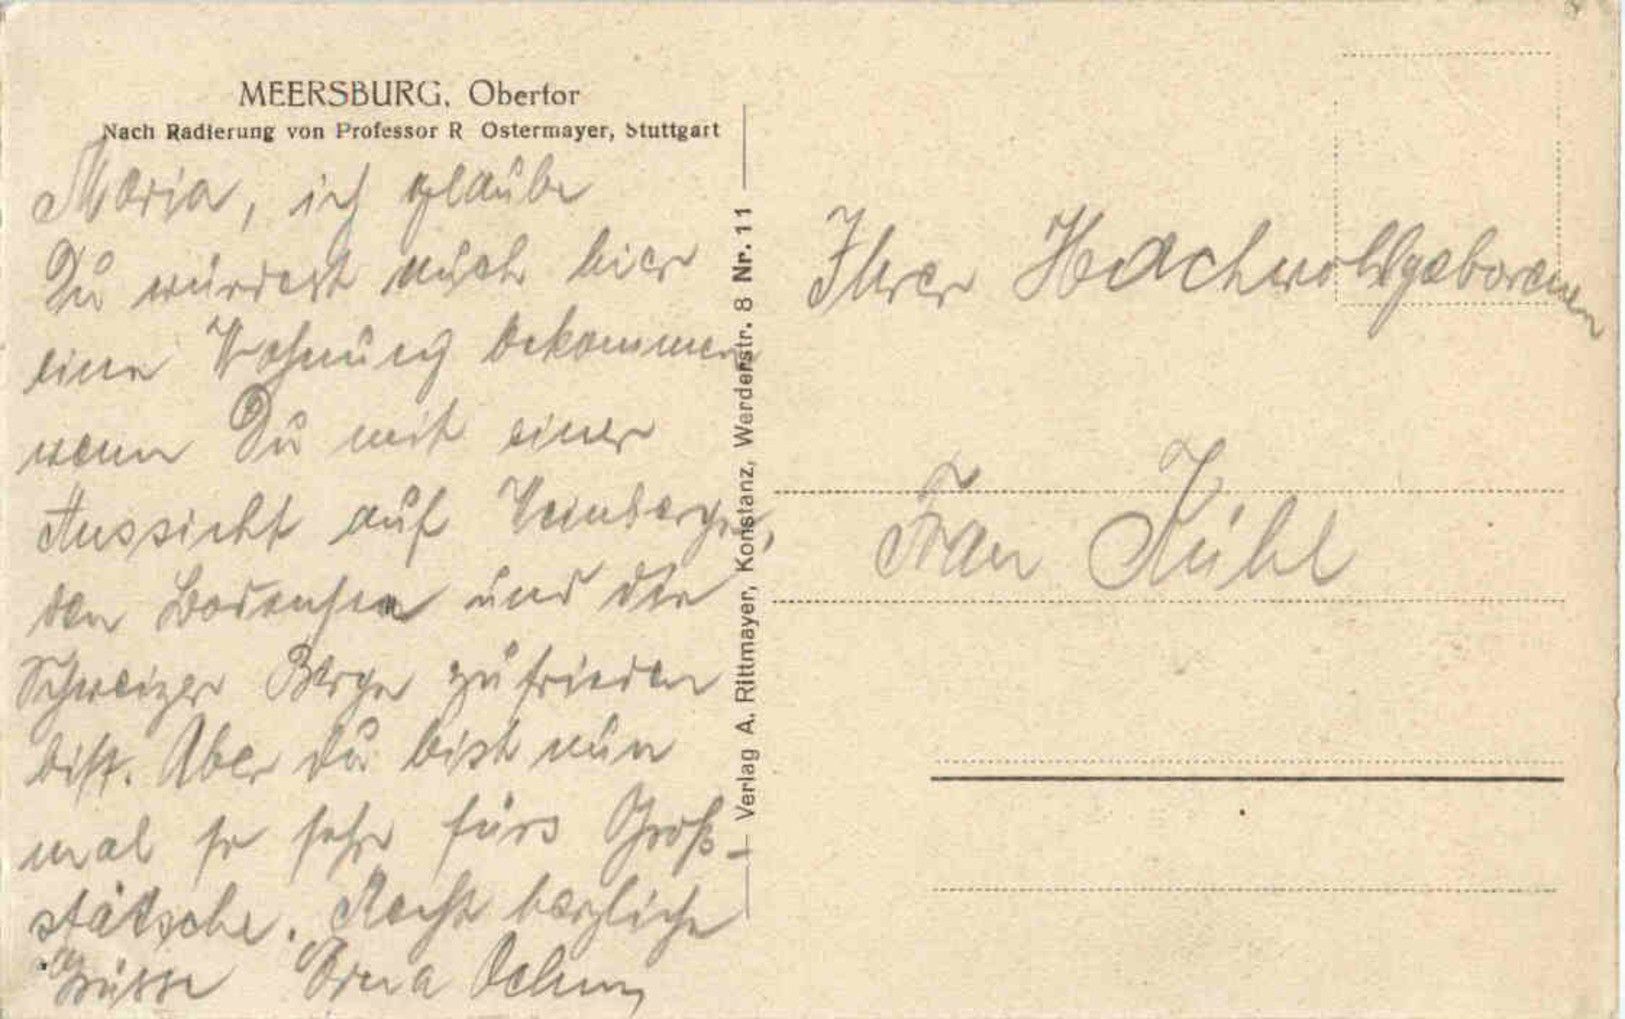 MEERSBURG, Obertor
Nach Radierung von Professor R Ostermayer, Stuttgart
Maria, ich glaube
Du würdest auch hier
eine Wohnung bekommen
wenn Du mit einer
Aussicht auf Weinberge,
den Bodensee und die
Schweizer Berge zufrieden
bist. Aber du bist nun
mal so sehr fürs Groß-
stätsche. Recht herzliche
Grüsse
Verlag A. Rittmayer, Konstanz, Werderstr. 8 Nr. 11
Ihrer Hochwohlgeborenen
Frau Kühl